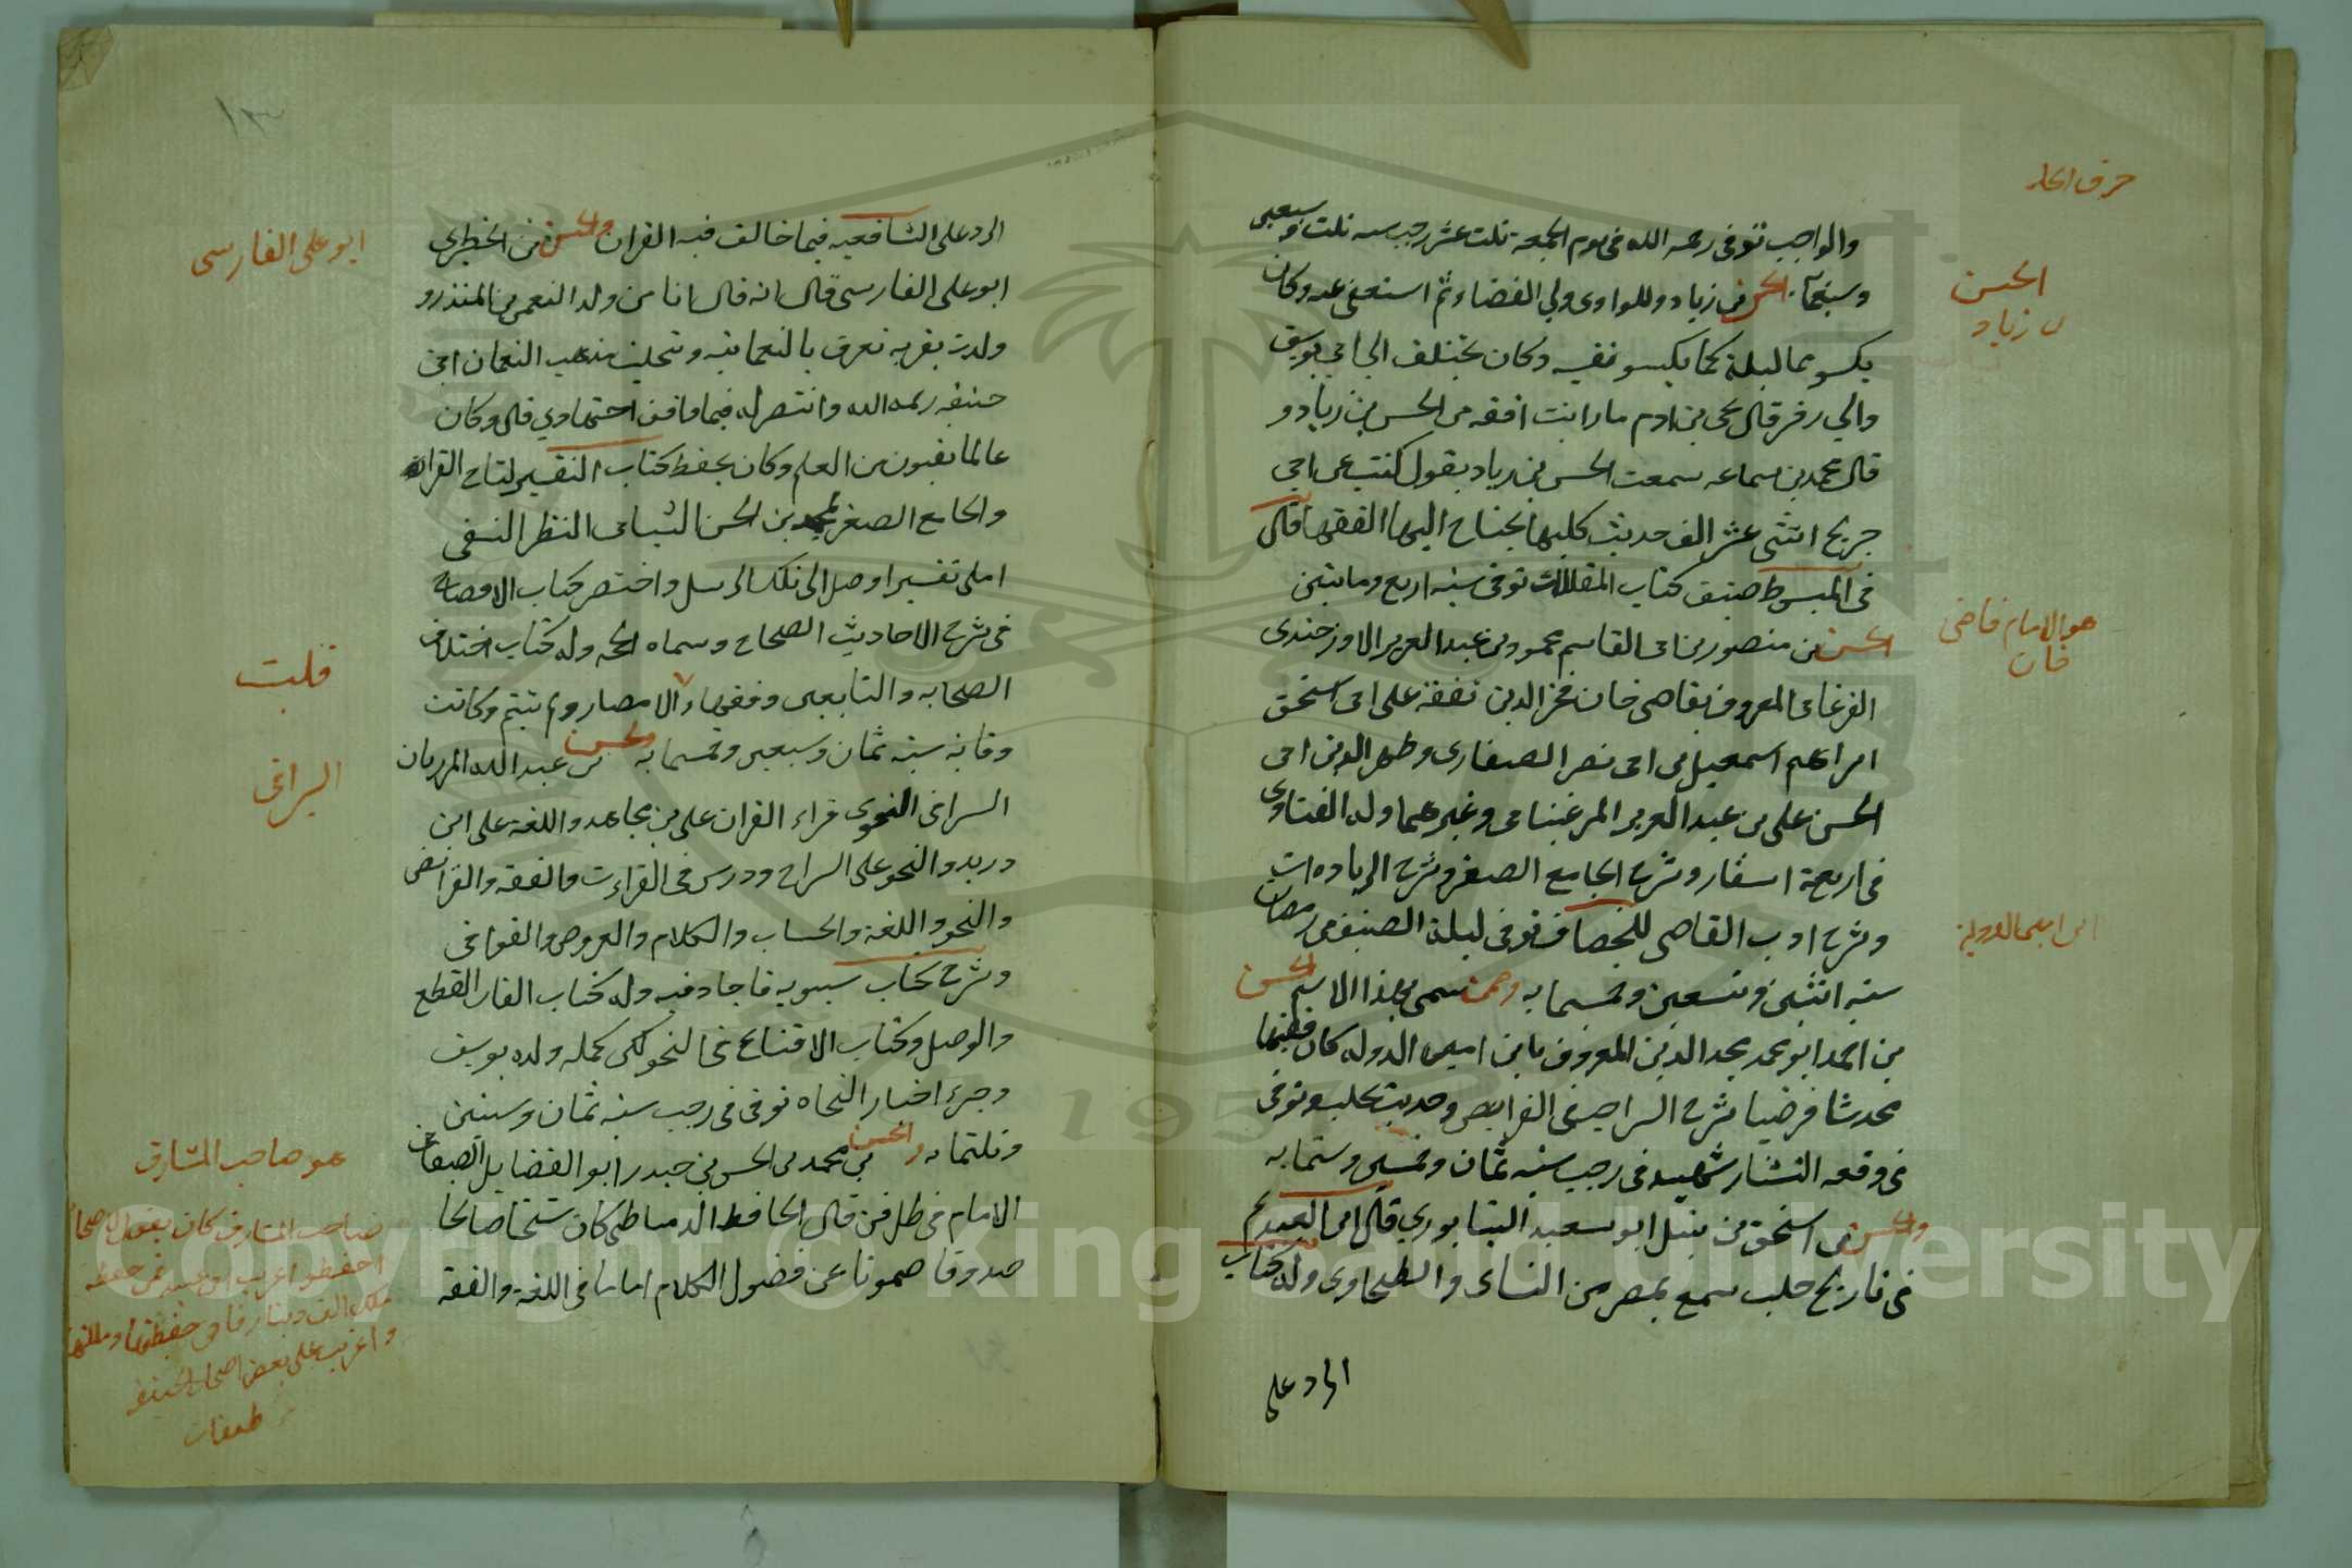 حرف الحاء
والواجب توفى رحمه الله فى يوم الجمعة ثلث عشر رجب سنه ثلث وسبعين
وسبعمائة الحسن بن زياد وللوادى ولي القضاء ثم استعفى عنه وكان
الحسن
بن زياد
يكسو مماليكه كما يكسو نفسه وكان يختلف الى ابي يوسف
والي زفر قال يحيى بن ادم ما رايت افقه من الحسن بن زياد و
قال محمد بن سماعه سمعت الحسن بن زياد يقول كتبت عن ابن
جريج اثنتى عشر الف حديث كلها يحتاج اليها الفقها قال
فى المبسوط صنف كتاب المقالات توفى سنه اربع ومايتين
هو الامام قاضى
خان
الحسن بن منصور بن ابى القاسم محمود بن عبد العزيز الاوزجندى
الفرغانى المعروف بقاضى خان فخر الدين تفقه على ابى اسحق
ابراهيم اسمعيل بن ابى نصر الصفارى وظهير الدين ابى
الحسن على بن عبد العزيز المرغينانى وغيرهما وله الفتاوى
فى اربعة اسفار وشرح الجامع الصغير وشرح الزيادات
وشرح ادب القاضى للخصاف توفى ليلة النصف من رمضان
ابن امين الدولة
سنه اثنتين وتسعين وخمسمايه وممن سمى بهذا الاسم الحسن
بن احمد ابو محمد مجد الدين المعروف بابن امين الدوله كان فقيها
محدثا فرضيا شرح السراجيه فى الفرايض وحديث بحلب وتوفى
فى وقعه التتار شهيد فى رجب سنه ثمان وخمسين وستمايه
والحسن بن اسحق بن نبيل ابو سعيد النيسابوري قال ابن العديم
فى تاريخ حلب سمع بمصر من النساى والطحاوى وله كتاب
الرد على
الرد على الشافعيه فيما خالف فيه القران والحسن بن الخطير
ابو على الفارسى
ابو على الفارسى قال انه قال انا من ولد النعمن بن المنذر و
ولدت بقريه تعرف بالنعمانيه وتنحلت مذهب النعمان ابى
حنيفه رحمه الله وانتصر له فيما وافق اجتهادي قال وكان
عالما بفنون من العلم وكان يحفظ كتاب التفسير لتاج القراء
والجامع الصغير لمحمد بن الحسن الشيبانى النظر النسفى
املى تفسيرا وصل الى تلك الرسل واختصر كتاب الافصاح
فى شرح الاحاديث الصحاح وسماه الحجه وله كتاب اختلاف
قلت
الصحابه والتابعين وفقهاء الامصار ولم تتم وكانت
وفاته سنه ثمان وسبعين وخمسمايه والحسن بن عبد الله المرزبان
السيرافى
السيرافى النحوى قراء القران على بن مجاهد واللغة على ابن
دريد والنحو على السراج ودرس فى القراءت والفقه والفرائض
والنحو واللغة والحساب والكلام والعروض والقوافى
وشرح كتاب سيبويه فاجاد فيه وله كتاب الفات القطع
والوصل وكتاب الاقناع فى النحو لكن كمله ولده يوسف
وجزء اخبار النحاه توفى فى رجب سنه ثمان وستين
هو صاحب المشارق
وثلثمايه والحسن بن محمد بن الحسن بن حيدر ابو الفضايل الصغانى
الامام فى كل فن قال الحافظ الدمياطى كان شيخا صالحا
صدوقا صموتا عن فضول الكلام اماما فى اللغة والفقه
صاحب المشارق كان يقول لاصحابه
احفظوا غريب ابى عبيد فمن حفظه
ملك الف دينار فانى حفظتها وملكتها
واغريت على بعض اصحاب الحنيفه
طبقات
1957
Copyright © King Saud University